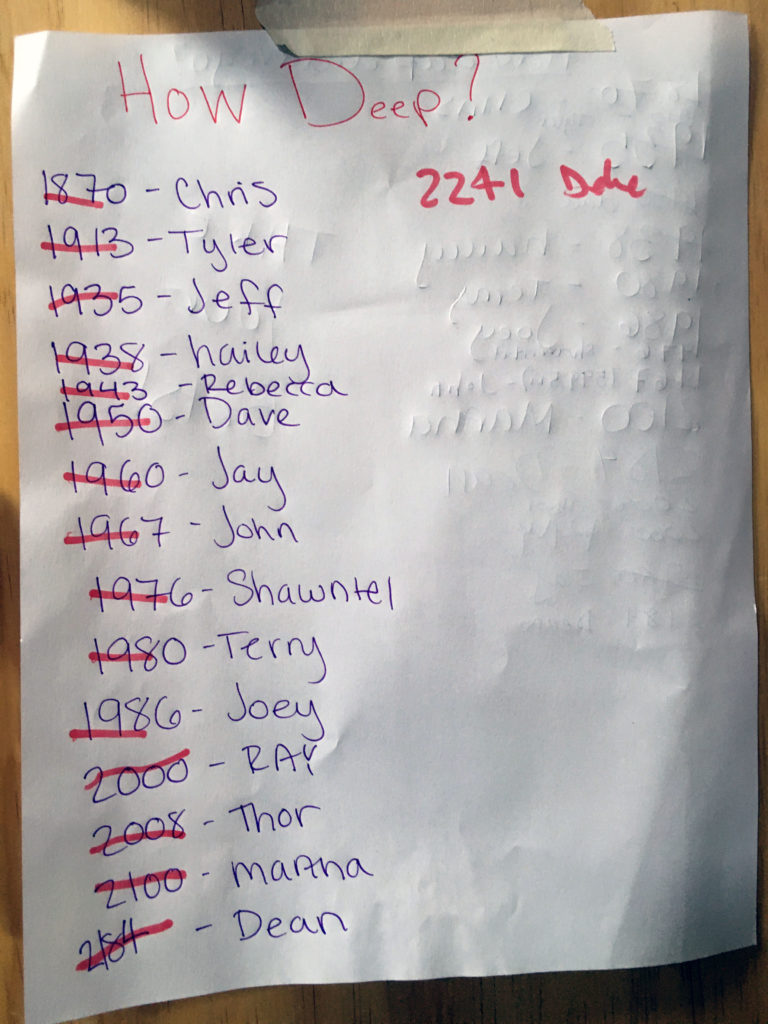 How Deep?
1870 - Chris
2241 Dave
1913 - Tyler
1935 - Jeff
1938 - hailey
1943 - Rebecca
1950 - Dave
1960 - Jay
1967 - John
1976 - Shawntel
1980 - Terry
1986 - Joey
2000 - RAY
2008 - Thor
2100 - martha
2184 - Dean